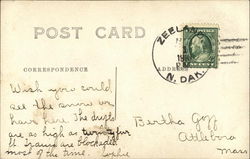 POST CARD
ZEELAND
N. DAK.
CORRESPONDENCE
ADDRESS
Wish you could
see the snow we
have here. The drifts
are as high as twenty four
ft. Trains are blockaded
most of the time. Sophie
Bertha Goff
Attleboro
Mass